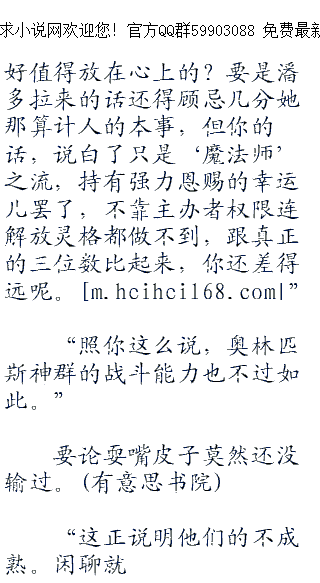 求小说网欢迎您！官方QQ群59903088 免费最新
好值得放在心上的？要是潘
多拉来的话还得顾忌几分她
那算计人的本事，但你的
话，说白了只是‘魔法师’
之流，持有强力恩赐的幸运
儿罢了，不靠主办者权限连
解放灵格都做不到，跟真正
的三位数比起来，你还差得
远呢。[m.hcihcil68.com|”
“照你这么说，奥林匹
斯神群的战斗能力也不过如
此。”
要论耍嘴皮子莫然还没
输过。(有意思书院)
“这正说明他们的不成
熟。闲聊就